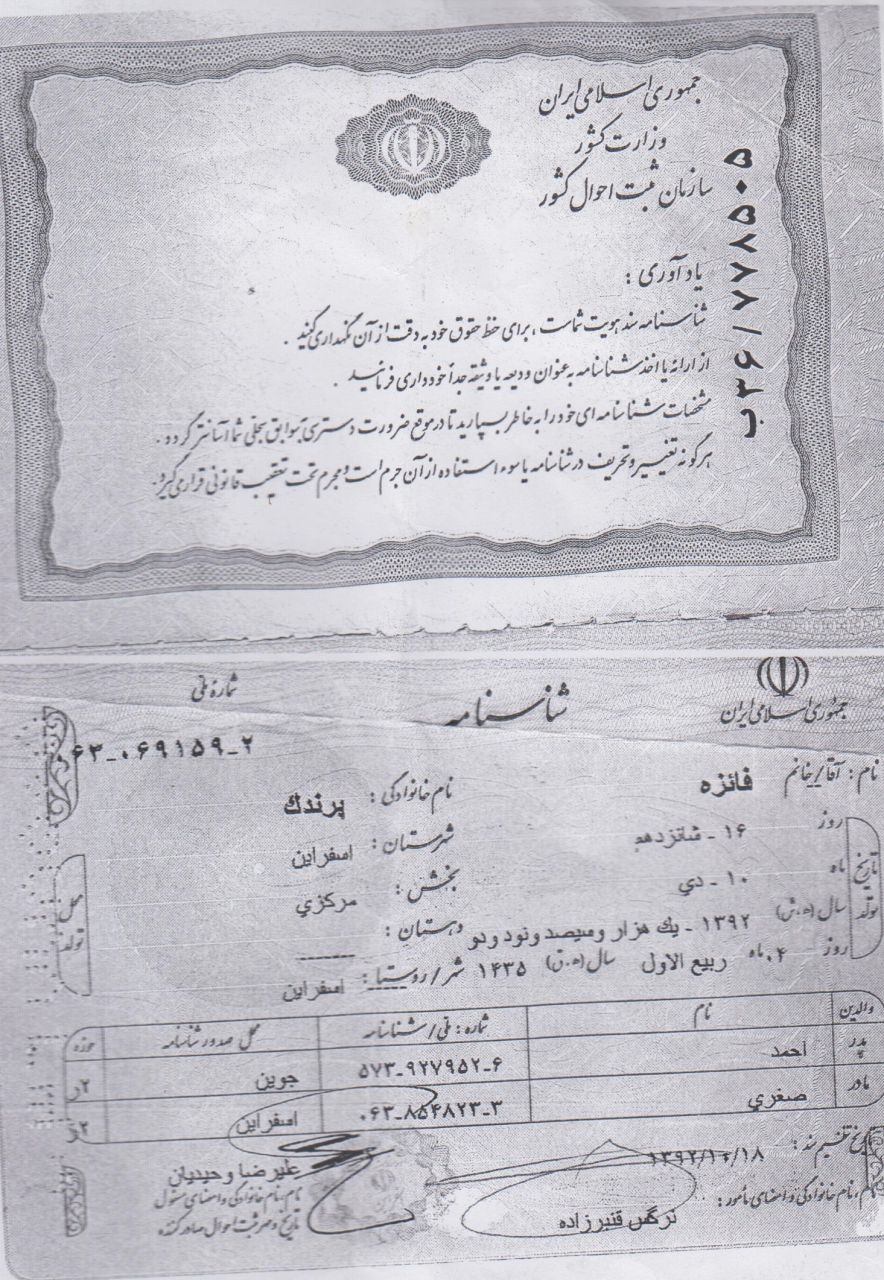 جمهوری اسلامی ایران
وزارت کشور
سازمان ثبت احوال کشور
ب۳۶/۷۷۸۵۰۵
یادآوری :
شناسنامه سند هویت شماست ، برای حفظ حقوق خود به دقت از آن نگهداری کنید .
از ارائه یا اخذ شناسنامه به عنوان ودیعه یا وثیقه جداً خودداری فرمائید .
مشخصات شناسنامه ای خود را به خاطر بسپارید تا در موقع ضرورت دسترسی بسوابق سجلی شما آسانتر گردد .
هرگونه تغییر و تحریف در شناسنامه یا سوء استفاده از آن جرم است و مجرم تحت تعقیب قانونی قرار می گیرد.
جمهوری اسلامی ایران
شناسنامه
شماره ملی
۰۶۳-۰۶۹۱۵۹-۲
نام : آقا/خانم فائزه نام خانوادگی : پرندك
تاریخ تولد
روز ۱۶ - شانزدهم
ماه ۱۰ - دي
سال (ه.ش) ۱۳۹۲ - يك هزار وسيصد ونود ودو
روز ۰۴ ماه ربيع الاول سال (ه.ق) ۱۴۳۵
محل تولد
شهرستان : اسفراين
بخش : مركزي
دهستان : ------
شهر / روستا : اسفراين
والدین نام شماره : ملی / شناسنامه محل صدور شناسنامه حوزه
پدر احمد ۵۷۳-۹۲۷۹۵۲-۶ جوين ۲ر
مادر صغري ۰۶۳-۸۵۴۸۲۳-۳ اسفراين ۲ر
تاریخ تنظیم سند : ۱۳۹۲/۱۰/۱۸
نام ، نام خانوادگی و امضای مأمور : نرگس قنبرزاده
عليرضا وحيديان
نام ، نام خانوادگی و امضای مسئول
تاریخ و مهر ثبت احوال صادر کننده